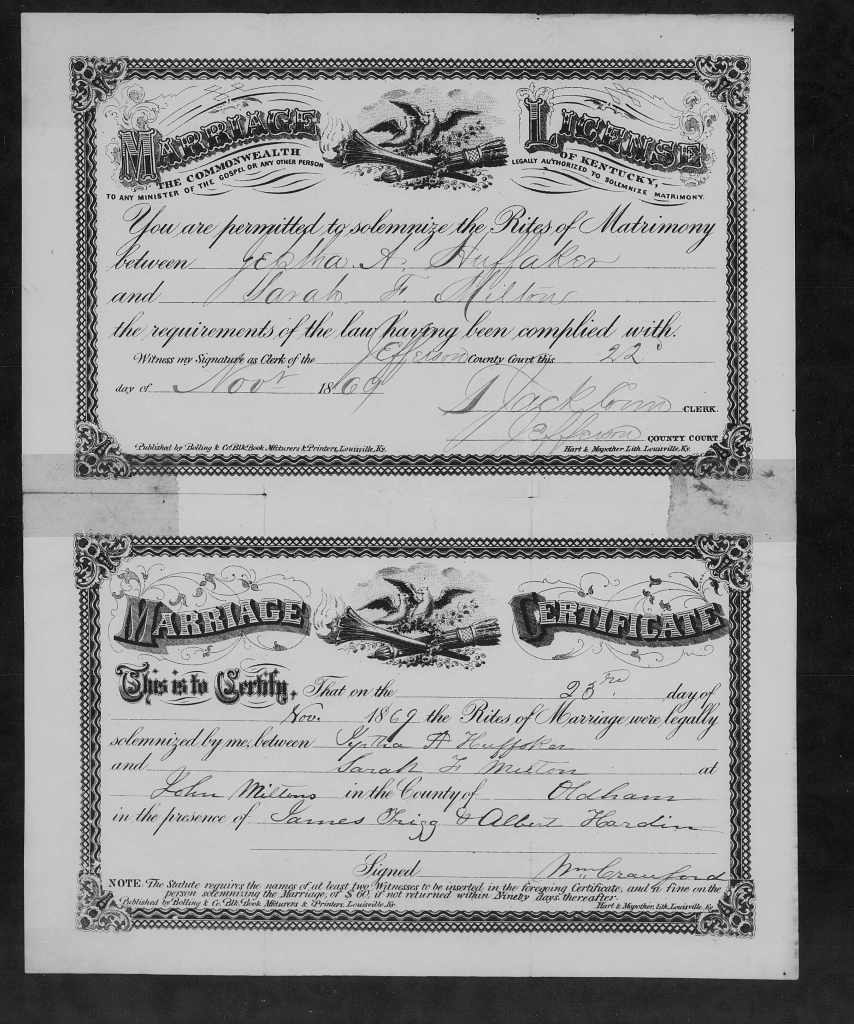 MARRIAGE LICENSE
THE COMMONWEALTH OF KENTUCKY,
TO ANY MINISTER OF THE GOSPEL OR ANY OTHER PERSON LEGALLY AUTHORIZED TO SOLEMNIZE MATRIMONY.
You are permitted to solemnize the Rites of Matrimony
between Jeptha A. Huffaker
and Sarah F Milton
the requirements of the law having been complied with.
Witness my Signature as Clerk of the Jefferson County Court this 22
day of Novr 1869
CLERK.
Jefferson COUNTY COURT
Published by Bolling & Co. Blk. Book Mfcturers & Printers, Louisville, Ky. Hart & Mapother Lith. Louisville, Ky.
MARRIAGE CERTIFICATE
This is to Certify, That on the 23rd day of
Nov. 1869 the Rites of Marriage were legally
solemnized by me, between Jeptha A Huffaker
and Sarah F Milton at
John Miltons in the County of Oldham
in the presence of James Trigg & Albert Hardin
Signed Wm Crawford
NOTE. The Statute requires the names of at least two Witnesses to be inserted in the foregoing Certificate, and a fine on the
person solemnizing the Marriage, of $60, if not returned within Ninety days thereafter.
Published by Bolling & Co. Blk Book Mfcturers & Printers, Louisville, Ky. Hart & Mapother, Lith. Louisville, Ky.